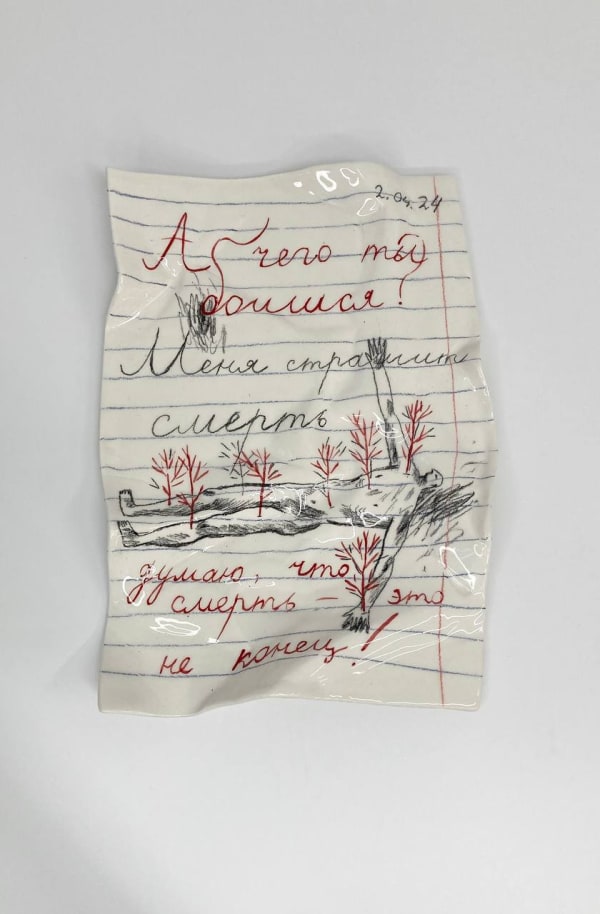 2.04.24
А чего ты
боишся?
Меня страшит
смерть
думаю, что
смерть – это
не конец!